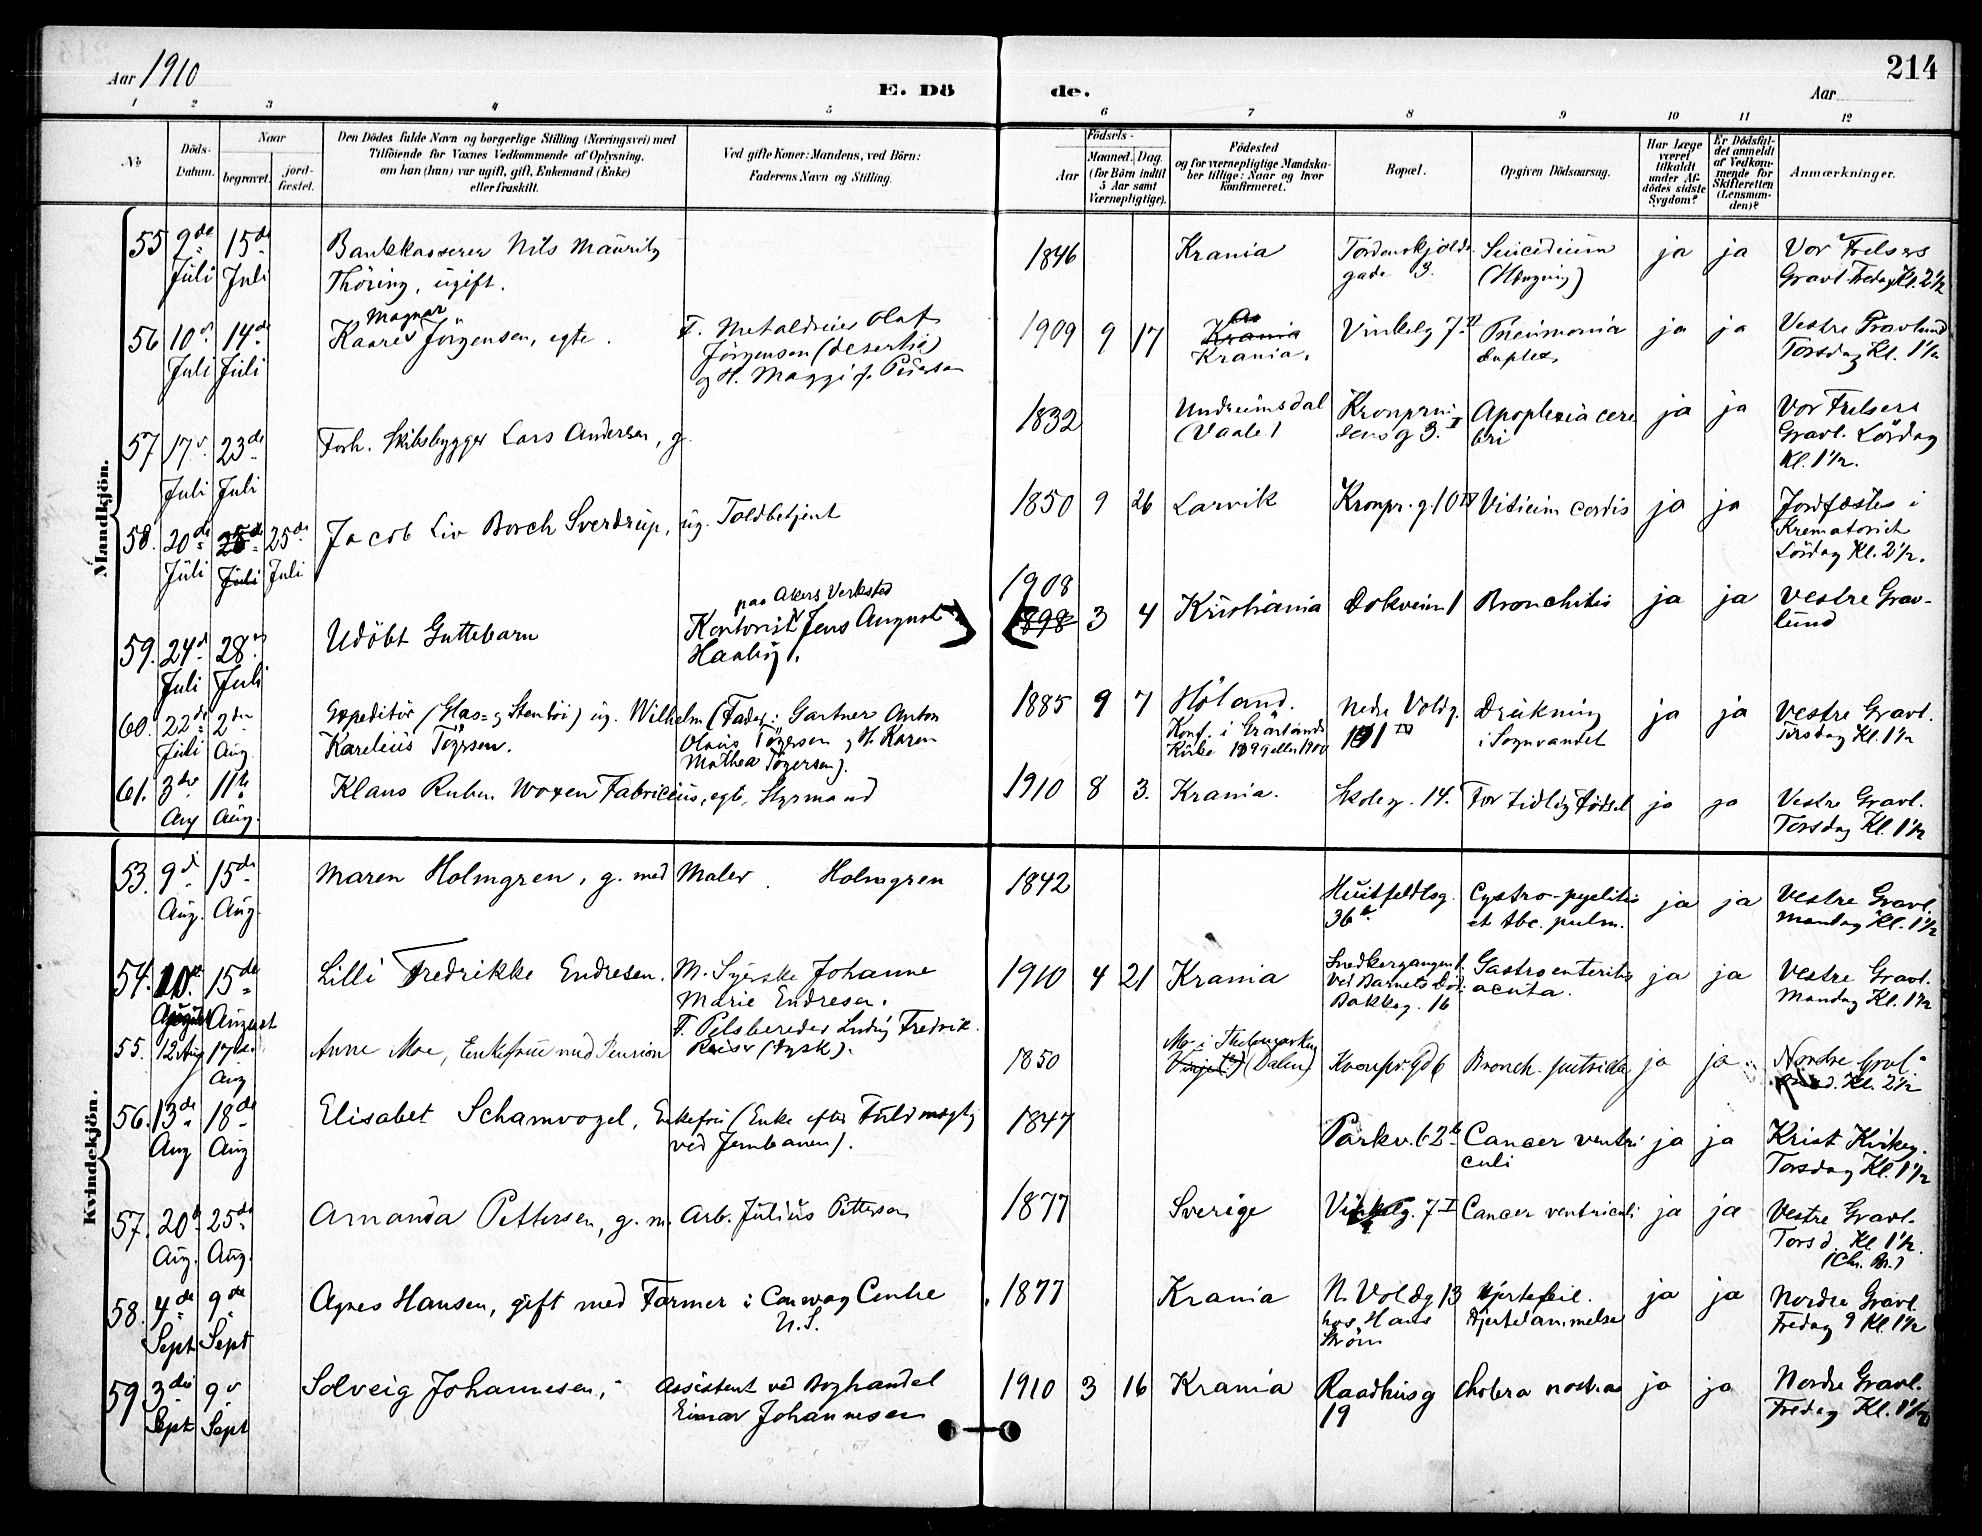 Aar 1910
E. Dö
de.
214
Aar
1 2 3 4 5 6 7 8 9 10 11 12
No
Döds-
Datum.
Naar
begravet.
jord-
fæstet.
Den Dödes fulde Navn og borgerlige Stilling (Næringsvei) med
Tilföiende for Voxnes Vedkommende af Oplysning,
om han (hun) var ugift, gift, Enkemand (Enke)
eller fraskilt.
Ved gifte Koner: Mandens, ved Börn:
Faderens Navn og Stilling.
Födsels-
Aar
Maaned.
Dag.
(for Börn indtil
5 Aar samt
Værnepligtige).
Födested
og for værnepligtige Mandska-
ber tillige: Naar og hvor
konfirmeret.
Bopæl.
Opgiven Dödsaarsag.
Har Læge
været
tilkaldt
under Af-
dödes sidste
Sygdom?
Er Dödsfal-
det anmeldt
af Vedkom-
mende for
Skifteretten
(Lensman-
den)?
Anmærkninger.
Mandkjön.
55 9de Juli 15de Juli
Bankkasserer Nils Mauritz
Thöring, ugift.
1846 Krania
Tordenskjolds
gade 3.
Suicidium
(Hængning)
ja ja
Vor Frelsers
Gravl. Fredag Kl. 2½
56 10' Juli 14de Juli
Magnar
Kaare Jörgensen, egte.
F. Metaldreier Olaf
Jörgensen
og H. Maggi f. Pedersen
1909 9 17
Krania
Krania.
Vinkelg 7
Pneumonia
duplex
ja ja
Vestre Gravlund
Torsdag Kl. 1½
57 17' Juli 23de Juli
Forh. Skibsbygger Lars Andersen, g.
1832
Undrumsdal
(Vaale)
Kronprin
sensg 3. I
Apoplexia cere
bri
ja ja
Vor Frelsers
Gravl. Lördag
Kl. 1½.
58. 20de Juli 25de Juli 25de Juli
Jacob Liv Borch Sverdrup, ug. Toldbetjent
1850 9 26 Larvik
Kronpr. g 10
Vitium cordis
ja ja
Jordfæstes i
Krematoriet
Lördag Kl. 2½.
59. 24d Juli 28' Juli
Udöbt Guttebarn
paa Akers Verksted
Kontorist Jens August
Haaböj.
1908
1898 3 4 Kristiania
Dokveien 1
Bronchitis
ja ja
Vestre Grav-
lund
60. 22de Juli 2den Aug.
Expeditör (Glas- og Stentöi) ug. Wilhelm (Fader: Gartner Anton
Karelius Tögersen.
Olaus Tögersen og H. Karen
Mathea Tögersen).
1885 9 7
Höland.
Konf. i Grönlands
Kirke 1899 eller 1900
Nedre Voldg.
11 IV
Drukning
i Sognvandet
ja ja
Vestre Gravl.
Tirsdag Kl. 1½
61. 3die Aug 11te Aug.
Klaus Ruben Woxen Fabricius, egte, Styrmand
1910 8 3. Krania.
Skoleg. 14.
For tidlig födsel
ja ja
Vestre Gravl.
Torsdag Kl. 1½
Kvindekjön.
53. 9d Aug. 15de Aug.
Maren Holmgren, g. med Maler Holmgren
1842
Huitfeldtsg.
36
Cysto-pyelitis
et tbc. pulm.
ja ja
Vestre Gravl.
Mandag Kl. 1½
54. 10de August 15de August
Lilli Fredrikke Endresen.
M. Syerske Johanne
Marie Endresen.
F. Pelsbereder Ludvig Fredrik
Reiser (tysk).
1910 4 21 Krania
Snedkergangen 1.
ved Barnets Död:
Bakkeg. 16
Gastroenteritis
acuta.
ja ja
Vestre Gravl.
Mandag Kl. 1½
55. 12 Aug 17de Aug
Anne Moe, Enkefrue med Pension
1850
Mo i Thelemarken
(Dalen)
Kronpr. Gd 6
Bronch. putrida
ja ja
Nordre Gravl.
Kl. 2½
56. 13de Aug 18de Aug
Elisabet Schamvogel, Enkefru (Enke efter Fuldmægtig
ved Jernbanen).
1847
Parkv. 62b
Cancer ventri
culi
ja ja
Krist Kirkeg.
Torsdag Kl. 1½
57. 20d Aug. 25de Aug.
Amanda Pettersen, g. m. Arb. Julius Petterson
1877 Sverige
Vinkelg. 7 I
Cancer ventriculi
ja ja
Vestre Gravl.
Torsd. Kl 1½.
(Chr. Br.)
58. 4de Sept 9de Sept
Agnes Hansen, gift med Farmer i Conway Centre
U.S.
1877 Krania
N. Voldg 13
hos Hans
Ström
Hjertefeil.
Hjertelammelse
ja ja
Nordre Gravl.
Fredag 9 Kl. 1½
59 3die Sept 9' Sept
Solveig Johannesen,
Assistent ved Boghandel
Einar Johannesen
1910 3 16 Krania
Raadhusg
19
Cholera nostras
ja ja
Nordre Gravl.
Fredag Kl. 1½